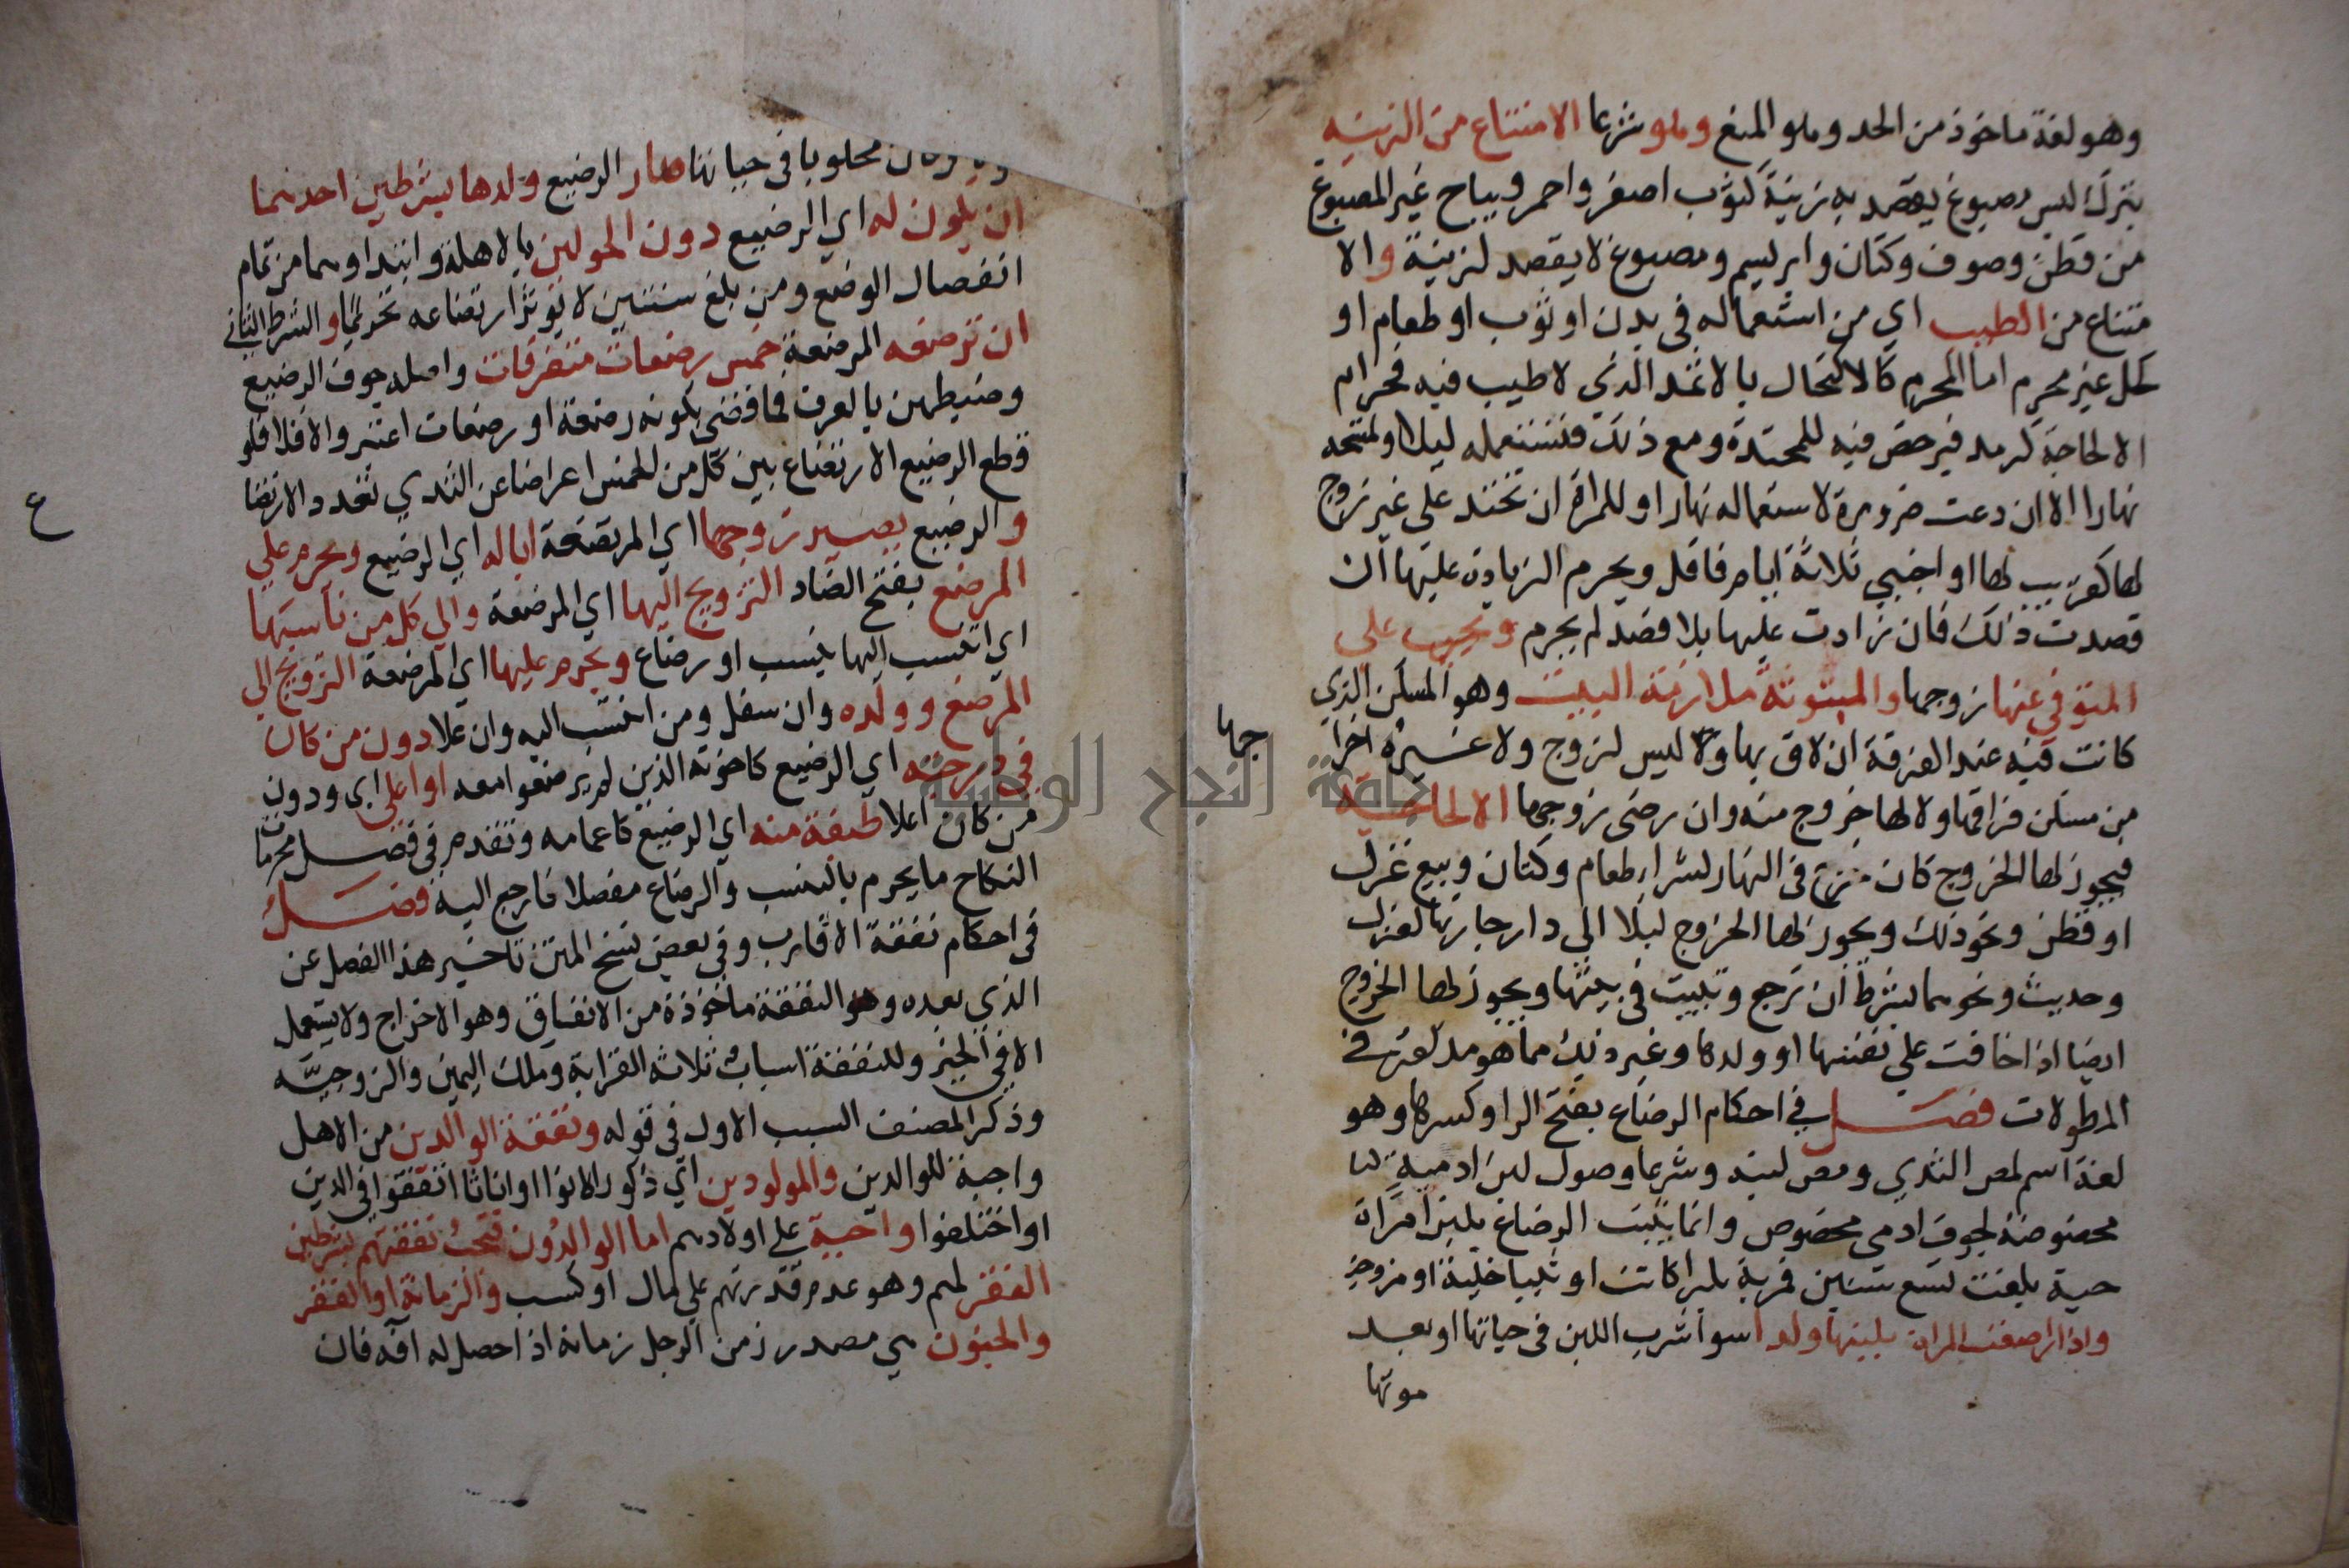 وهو لغة ماخوذ من الحد وهو المنع وهو شرعا الامتناع من الزينة
بترك لبس مصبوغ يقصد به زينة كثوب اصفر واحمر ويباح غير المصبوغ
من قطن وصوف وكتان وابريسم ومصبوغ لا يقصد لزينة والا
متناع من الطيب اي من استعماله في بدن او ثوب او طعام او
كحل غير محرم اما المحرم كالاكتحال بالاثمد الذي لا طيب فيه فحرام
الا لحاجة كرمد فيرخص فيه للمحتدة ومع ذلك فتستعمله ليلا وتمسحه
نهارا الا ان دعت ضرورة لاستعماله نهارا وللمراة ان تحتد على غير زوج
لها كقريب لها او اجنبي ثلاثة ايام فاقل ويحرم الزيادة عليها ان
قصدت ذلك فان زادت عليها بلا قصد لم يحرم ويجب على
المتوفي عنها زوجها والمبتوتة ملازمة البيت وهو المسكن الذي
كانت فيه عند الفرقة ان لاق بها ولا ليس لزوج ولا غيره اخرا
جها
من مسكن فراقها ولا لها خروج منه وان رضى زوجها الا لحاجة
فيجوز لها الخروج كان في النهار لشرا طعام وكتان وبيع غزل
او قطن ونحو ذلك ويجوز لها الخروج ليلا الى دار جارتها لغزل
وحديث ونحوهما بشرط ان ترجع وتبيت في بيتها ويجوز لها الخروج
ايضا اذا خافت على نفسها او ولدها وغير ذلك مما هو مذكور في
المطولات فصل في احكام الرضاع بفتح الرا وكسرها وهو
لغة اسم لمص الثدي ومص لبنه وشرعا وصول لبن ادمية
مخصوصة لجوف ادمي مخصوص وانما يثبت الرضاع بلبن امراة
حية بلغت تسع سنين قمرية بكرا كانت او ثيبا خلية او مزوجة
واذا ارضعت المراة بلبنها ولدا سوا شرب اللبن في حياتها او بعد
موتها
وكان محلوبا في حياتها صار الرضيع ولدها بشرطين احدهما
ان يكون له اي الرضيع دون الحولين بالاهلة وابتداوهما من تمام
انفصال الوضع ومن بلغ سنتين لا يوثر ارتضاعه تحريما والشرط الثاني
ان ترضعه المرضعة خمس رضعات متفرقات واصله جوف الرضيع
وضبطهن بالعرف فما قضى بكونه رضعة او رضعات اعتبر والا فلا فلو
قطع الرضيع الارتضاع بين كل من الخمس اعراضا عن الثدي تعدد الارتضا
ع
والرضيع يصير زوجها اي المرتضعة ابا له اي الرضيع ويحرم على
المرضع بفتح الضاد التزويج اليها اي المرضعة والي كل من ناسبها
اي انتسب اليها بنسب او رضاع ويحرم عليها اي المرضعة التزويج الي
المرضع وولده وان سفل ومن انتسب اليه وان علا دون من كان
في درجته اي الرضيع كاخوته الذين لم يرضعوا معه او اعلى اي ودون
من كان اعلا طبقة منه اي الرضيع كاعمامه وتقدم في فصل محرمات
النكاح ما يحرم بالنسب والرضاع مفصلا فارجع اليه فصل
في احكام نفقة الاقارب وفي بعض نسخ المتن تاخير هذا الفصل عن
الذي بعده وهو النفقة ماخوذة من الانفاق وهو الاخراج ولا يستعمل
الا في الخير وللنفقة اسباب ثلاثه القرابة وملك اليمين والزوجيه
وذكر المصنف السبب الاول في قوله ونفقة الوالدين من الاهل
واجبة للوالدين والمولودين اي ذكورا كانوا او اناثا اتفقوا في الدين
او اختلفوا واجبة على اولادهم اما الوالدون فتجب نفقتهم بشرطين
الفقر لهم وهو عدم قدرتهم علي مال او كسب والزمانة او الفقر
والجنون هي مصدر زمن الرجل زمانة اذا حصل له افه فان
جامعة النجاح الوطنية